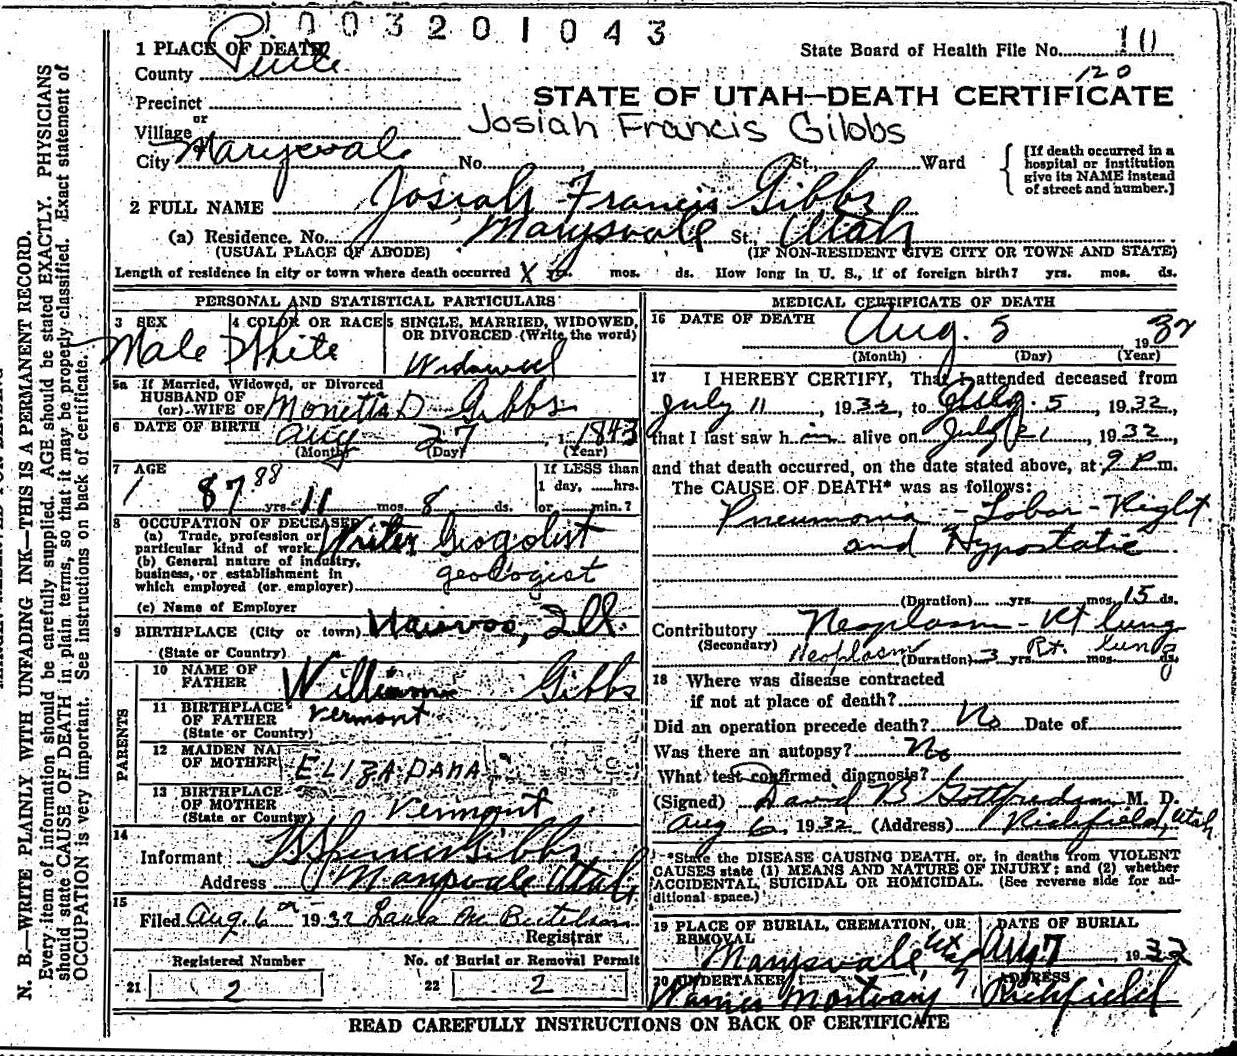 1003201043
1 PLACE OF DEATH
State Board of Health File No. 10
County Piute
120
Precinct
STATE OF UTAH—DEATH CERTIFICATE
or
Village
Josiah Francis Gibbs
City Marysvale No. St. Ward
[If death occurred in a hospital or institution give its NAME instead of street and number.]
2 FULL NAME Josiah Francis Gibbs
(a) Residence. No. Marysvale St., Utah
(USUAL PLACE OF ABODE) (IF NON-RESIDENT GIVE CITY OR TOWN AND STATE)
Length of residence in city or town where death occurred X yrs. mos. ds. How long in U. S., if of foreign birth? yrs. mos. ds.
PERSONAL AND STATISTICAL PARTICULARS
3 SEX 4 COLOR OR RACE 5 SINGLE, MARRIED, WIDOWED,
OR DIVORCED (Write the word)
Male White Widowed
5a If Married, Widowed, or Divorced
HUSBAND OF
(or) WIFE OF Monetta D Gibbs
6 DATE OF BIRTH Aug 27, 1843
(Month) (Day) (Year)
7 AGE
If LESS than
1 day, ......hrs.
87 88 yrs. 11 mos. 8 ds. or ...... min.?
8 OCCUPATION OF DECEASED
(a) Trade, profession or
particular kind of work Writer Giogolist
(b) General nature of industry,
business, or establishment in
which employed (or employer) geologist
(c) Name of Employer
9 BIRTHPLACE (City or town) Nauvoo, Ill.
(State or Country)
PARENTS
10 NAME OF
FATHER William Gibbs
11 BIRTHPLACE
OF FATHER Vermont
(State or Country)
12 MAIDEN NA
OF MOTHER ELIZA DANA
13 BIRTHPLACE
OF MOTHER Vermont
(State or Country)
14
Informant Spencer Gibbs
Address Marysvale Utah
15
Filed Aug. 6 1932 Laura
Registrar
Registered Number No. of Burial or Removal Permit
21 2 22 2
MEDICAL CERTIFICATE OF DEATH
16 DATE OF DEATH Aug. 5 1932
(Month) (Day) (Year)
17 I HEREBY CERTIFY, That I attended deceased from
July 11, 1932, to 5, 1932,
that I last saw him alive on July 21, 1932,
and that death occurred, on the date stated above, at 9 P.m.
The CAUSE OF DEATH* was as follows:
Pneumonia - Lobar - Right
and Hypostatic
(Duration) yrs. mos. 15 ds.
Contributory Neoplasm - Rt lung
(Secondary) Neoplasm Rt. lung
(Duration) 3 yrs. mos. ds.
18 Where was disease contracted
if not at place of death?
Did an operation precede death? No Date of
Was there an autopsy? No
What test confirmed diagnosis?
(Signed) David B Gottfredson M. D.
Aug 6, 1932 (Address) Richfield, Utah
*State the DISEASE CAUSING DEATH, or, in deaths from VIOLENT
CAUSES state (1) MEANS AND NATURE OF INJURY; and (2) whether
ACCIDENTAL, SUICIDAL OR HOMICIDAL. (See reverse side for ad-
ditional space.)
19 PLACE OF BURIAL, CREMATION, OR
REMOVAL
DATE OF BURIAL
Marysvale Utah Aug 7, 1932
20 UNDERTAKER ADDRESS
Mortuary Richfield
READ CAREFULLY INSTRUCTIONS ON BACK OF CERTIFICATE
N. B.—WRITE PLAINLY WITH UNFADING INK—THIS IS A PERMANENT RECORD.
Every item of information should be carefully supplied. AGE should be stated EXACTLY. PHYSICIANS
should state CAUSE OF DEATH in plain terms, so that it may be properly classified. Exact statement of
OCCUPATION is very important. See instructions on back of certificate.